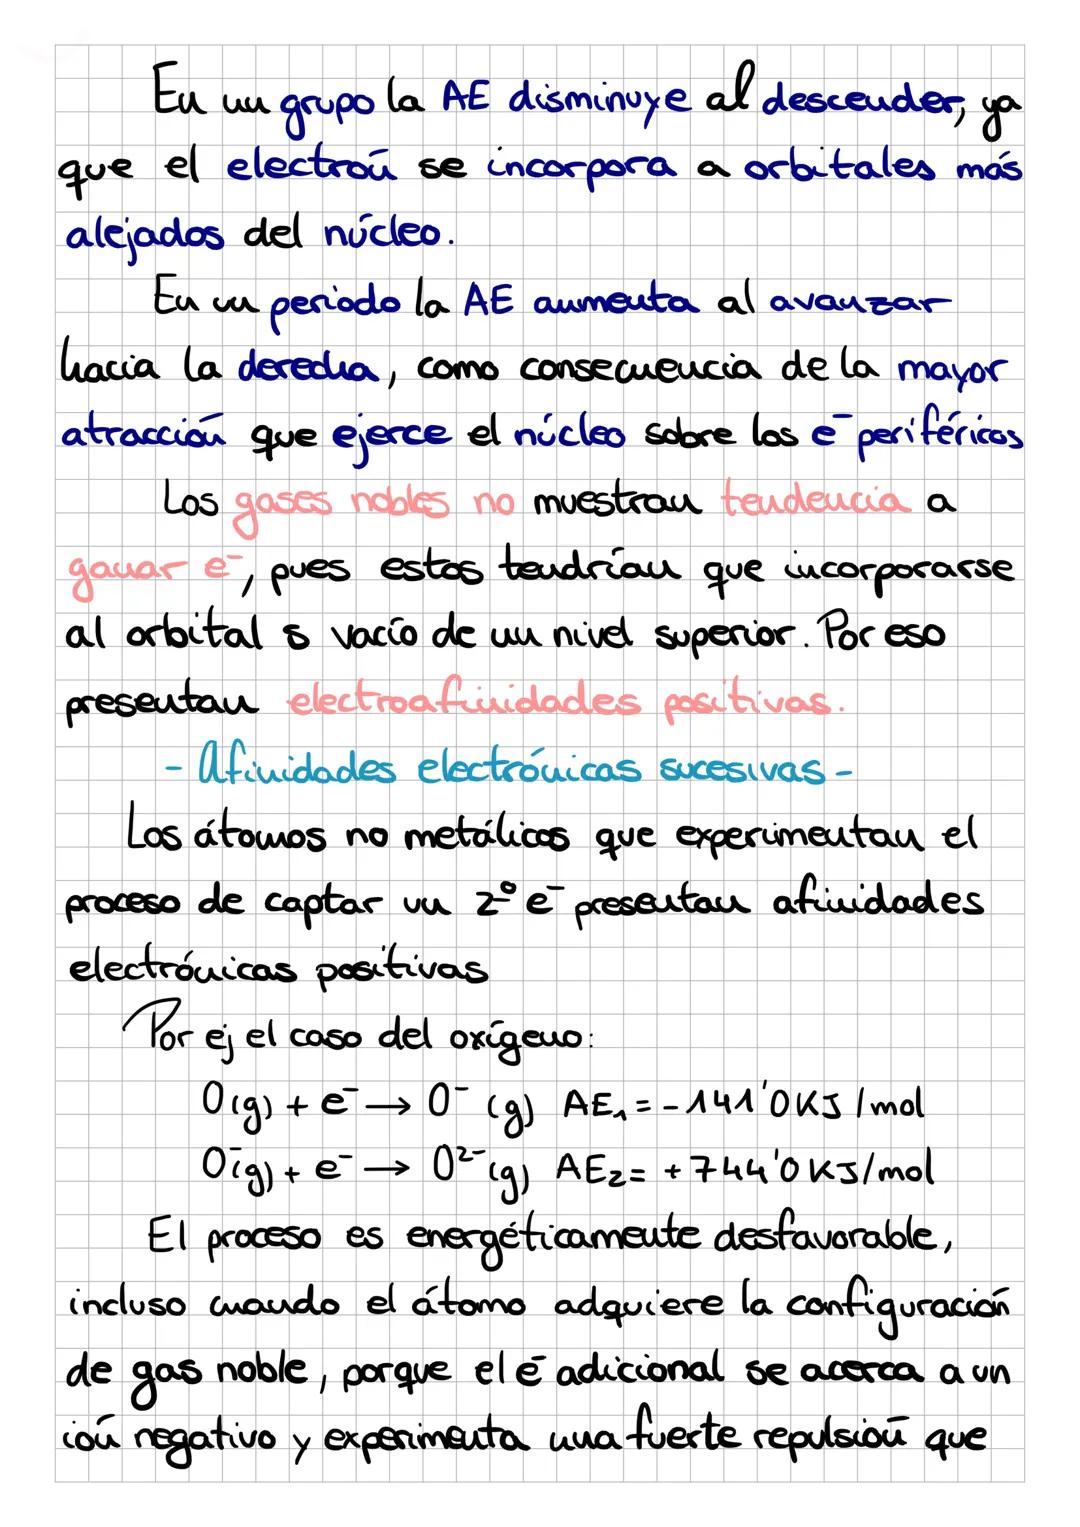 En un grupo la AE disminuye al descender, ya
que el electrón se incorpora a orbitales más
alejados del núcleo.
En un periodo la AE aumenta al avanzar
hacia la derecha, como consecuencia de la mayor
atracción que ejerce el núcleo sobre los e⁻ periféricos
Los gases nobles no muestran tendencia a
ganar e⁻, pues estos tendrían que incorporarse
al orbital s vacío de un nivel superior. Por eso
presentan electroafinidades positivas.
- Afinidades electrónicas sucesivas -
Los átomos no metálicos que experimentan el
proceso de captar un 2º e⁻ presentan afinidades
electrónicas positivas
Por ej el caso del oxígeno:
O(g) + e⁻ → O⁻ (g) AE₁ = -141'0 KJ/mol
O⁻(g) + e⁻ → O²⁻(g) AE₂= +744'0 KJ/mol
El proceso es energéticamente desfavorable,
incluso cuando el átomo adquiere la configuración
de gas noble, porque el e⁻ adicional se acerca a un
ión negativo y experimenta una fuerte repulsión que